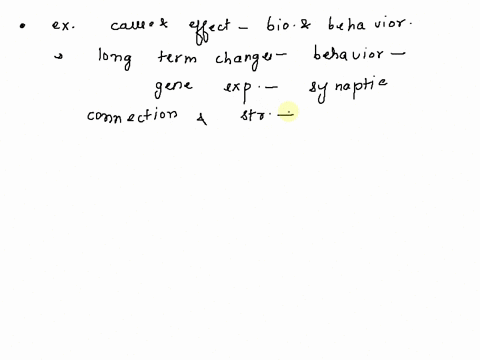 • ex. cause & effect – bio. & behavior.
→ long term change – behavior –
gene exp. – synaptic
connection & str. –